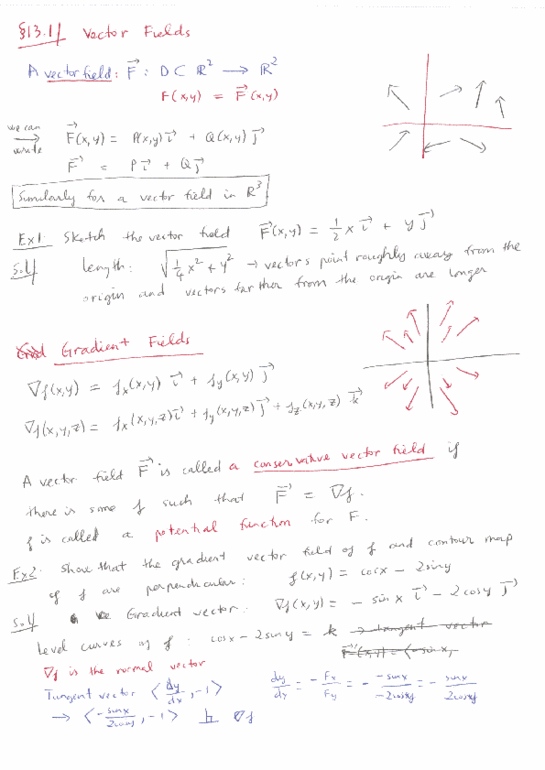 §13.1 Vector Fields
A vector field: F⃗ : D ⊂ ℝ² → ℝ²
F(x,y) = F⃗(x,y)
we can write → F⃗(x,y) = P(x,y) i⃗ + Q(x,y) j⃗
F⃗ = P i⃗ + Q j⃗
Similarly for a vector field in ℝ³
Ex1: Sketch the vector field F⃗(x,y) = 1/2 x i⃗ + y j⃗
Sol/ length: √(1/4 x² + y²) → vectors point roughly away from the
origin and vectors farther from the origin are longer
Gradient Fields
∇f(x,y) = fx(x,y) i⃗ + fy(x,y) j⃗
∇f(x,y,z) = fx(x,y,z) i⃗ + fy(x,y,z) j⃗ + fz(x,y,z) k⃗
A vector field F⃗ is called a conservative vector field if
there is some f such that F⃗ = ∇f.
f is called a potential function for F.
Ex2: Show that the gradient vector field of f and contour map
of f are perpendicular: f(x,y) = cosx - 2siny
Sol/ Gradient vector: ∇f(x,y) = - sin x i⃗ - 2cosy j⃗
Level curves of f: cosx - 2siny = k → tangent vector
F⃗(x,y) = ⟨-sinx,
∇f is the normal vector
Tangent vector ⟨dy/dx, -1⟩ dy/dx = - Fx/Fy = - -sinx/-2cosy = - sinx/2cosy
→ ⟨- sinx/2cosy, -1⟩ ⊥ ∇f